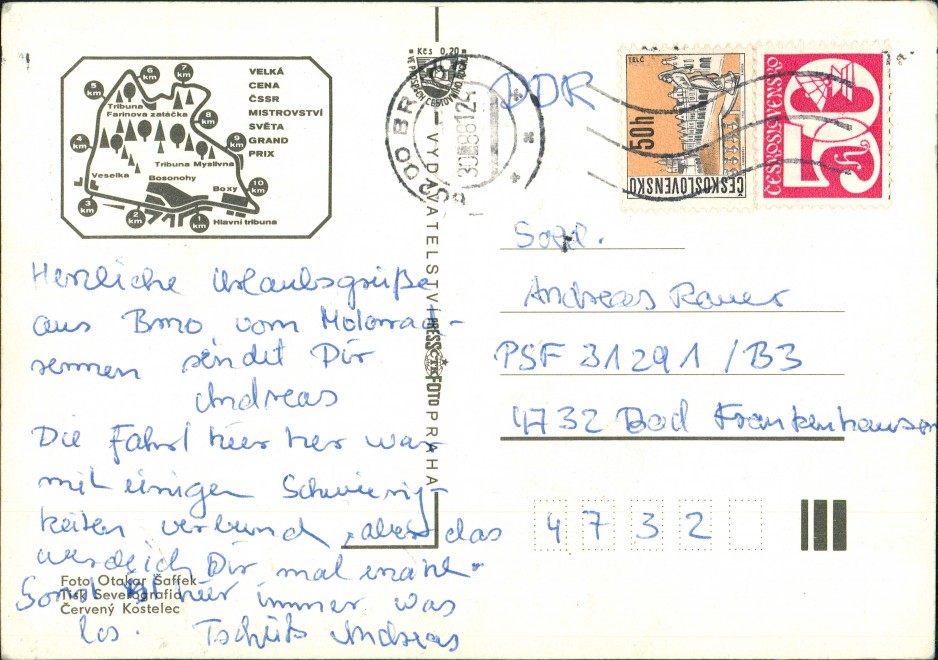 VELKÁ
CENA
ČSSR
MISTROVSTVÍ
SVĚTA
GRAND
PRIX
5 km
6 km
7 km
Tribuna
Farinova zatáčka
8 km
4 km
9 km
Tribuna Myslivna
Veselka
Bosonohy
Boxy
10 km
3 km
2 km
1 km
Hlavní tribuna
Herzliche Urlaubsgrüße
aus Brno vom Motorrad-
rennen sendet Dir
Andreas
Die Fahrt hier her war
mit einigen Schwierig-
keiten verbund, aber das
werd ich Dir mal erzähl.
Sonst ist hier immer was
los. Tschüß Andreas
Foto Otakar Šaffek
Tisk Severografia
Červený Kostelec
Kčs 0,20
VYDAVATELSTVÍ PRESSFOTO PRAHA
BR
DDR
TELČ
50h
ČESKOSLOVENSKO
ČESKOSLOVENSKO
50
Sold.
Andreas Rauer
PSF 31291/B3
4732 Bad Frankenhausen
4732